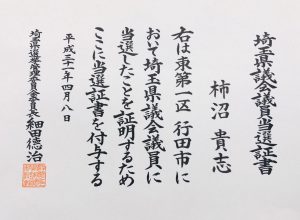 埼玉県議会議員当選証書
柿沼貴志
右は東第一区 行田市に
おいて埼玉県議会議員に
当選したことを証明するため
ここに当選証書を付与する
平成三十一年四月八日
埼玉県選挙管理委員会委員長 細田德治